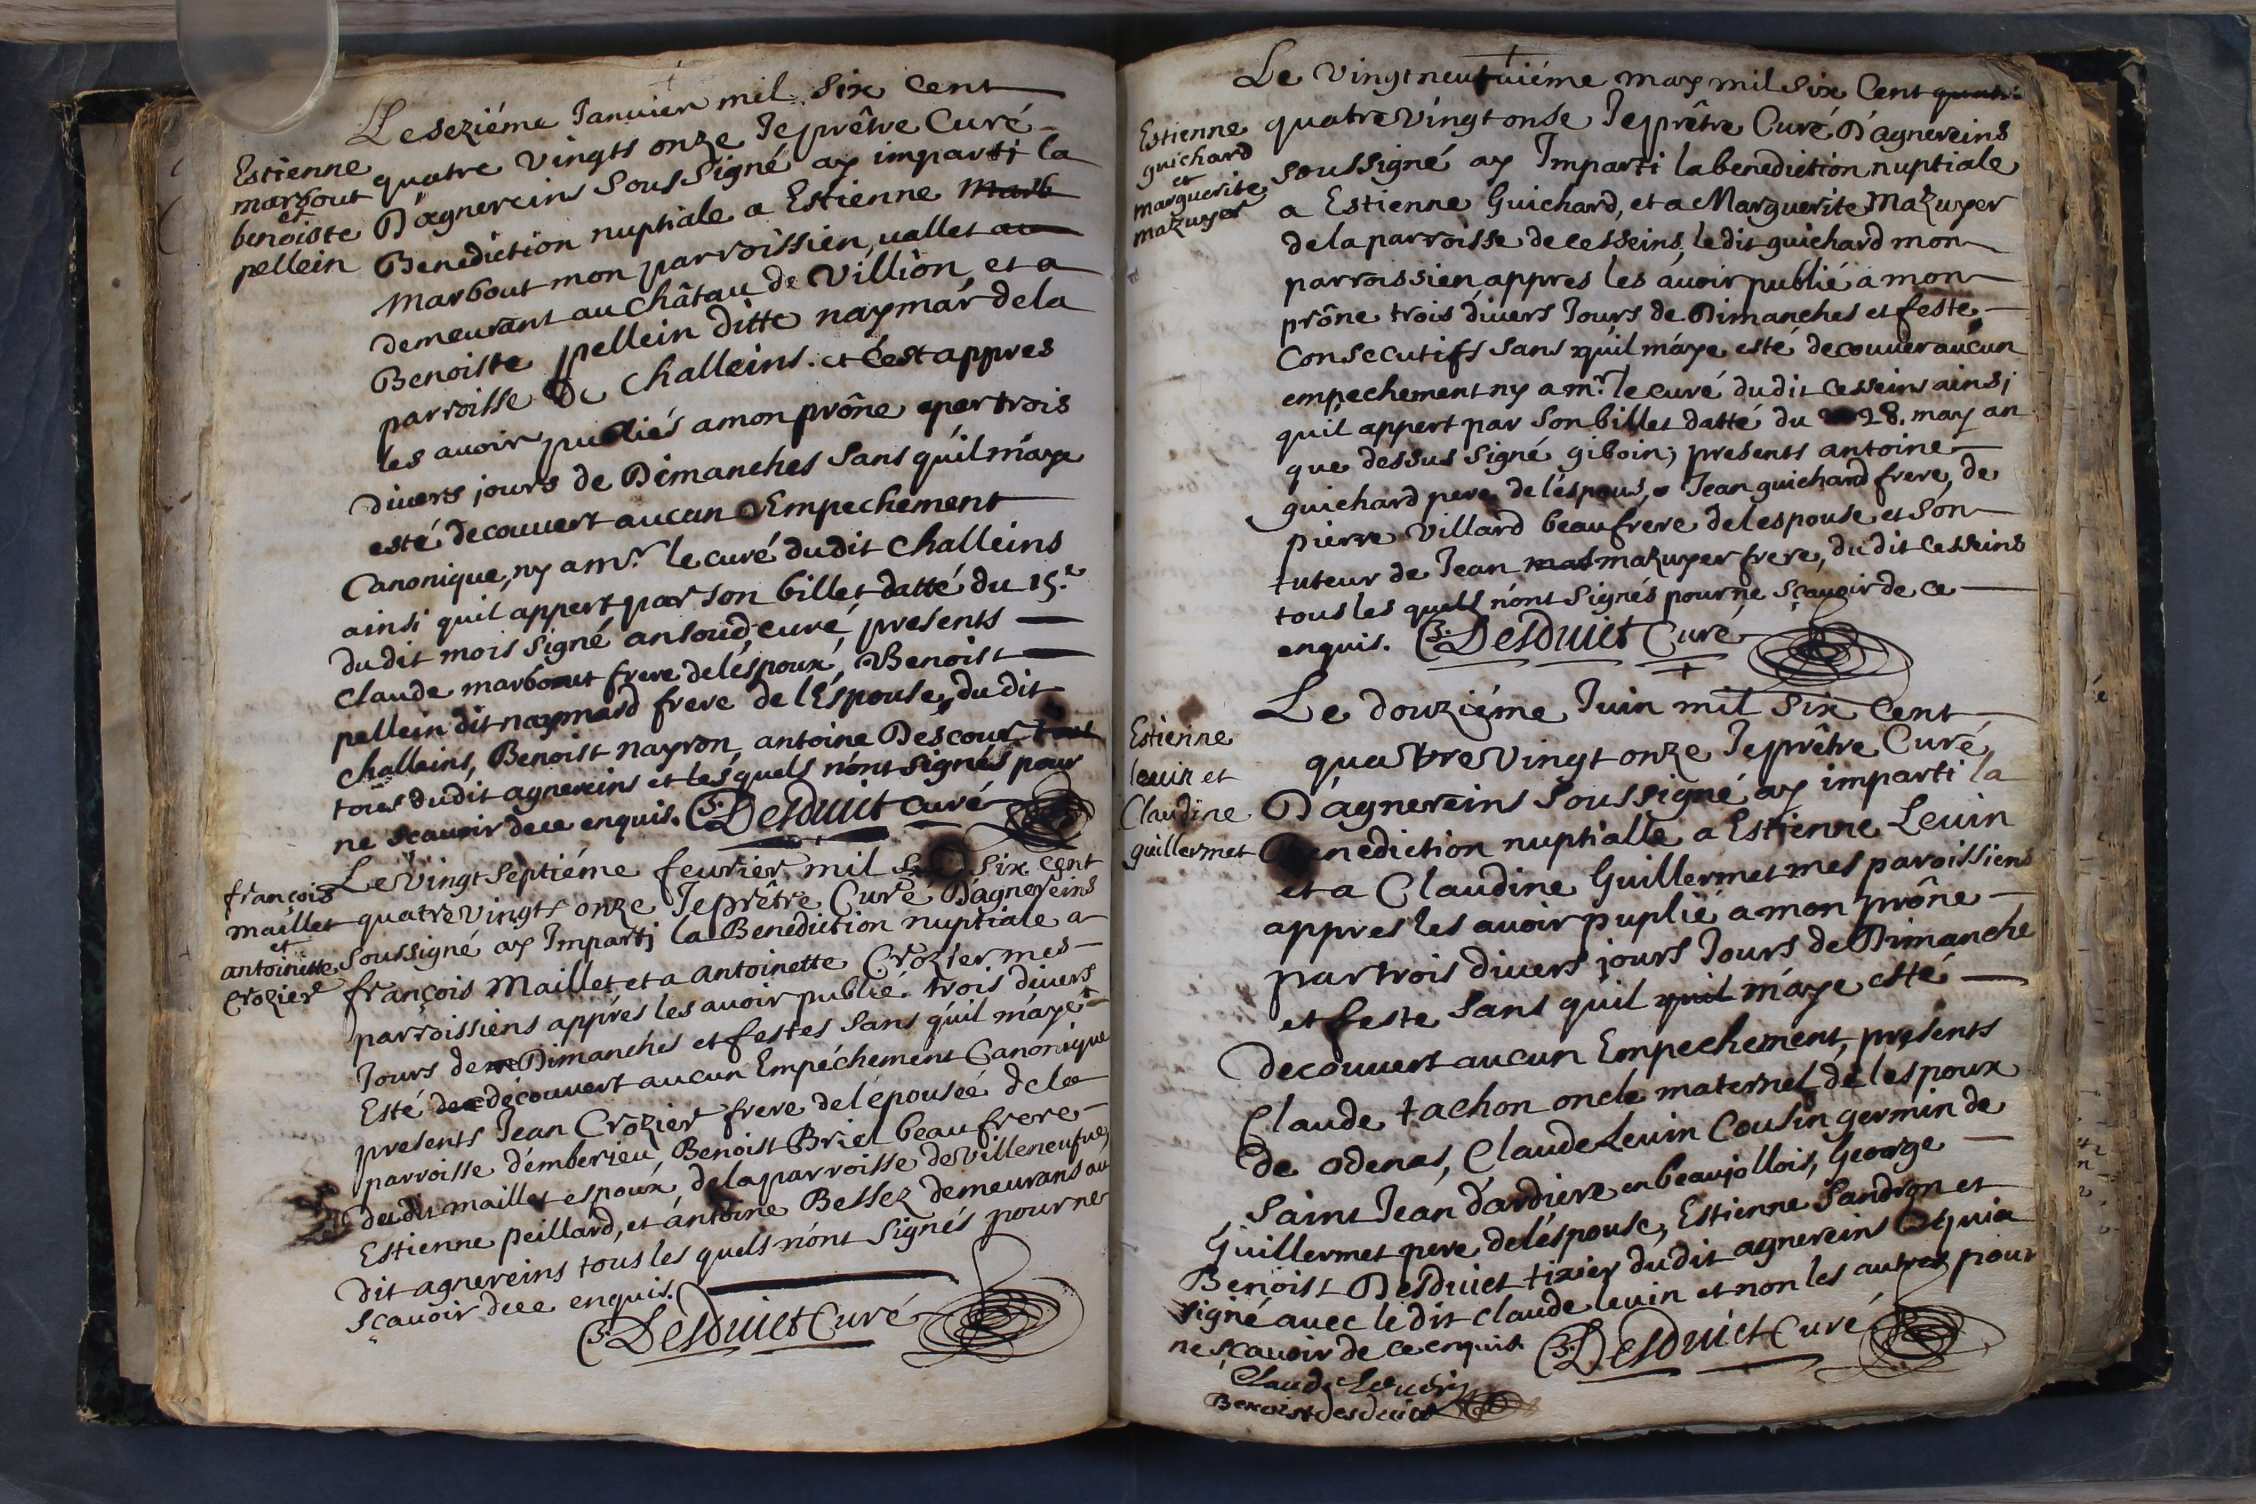 Le seziéme Januier mil six cent
Estienne
marbout
et
benoiste
pellein
quatre vingts onze Je prêtre Curé
D'agnereins sousSigné ay imparti la
Benediction nuptiale a Estienne Marb
Marbout mon parroissien, uallet au
demeurant au châtau de Villion, et a
Benoiste pellein ditte naymar dela
parroisse De challeins. et c'est appres
les auoir publiés a mon prône par trois
diuers jours de Dimanches sans qu'il m'aye
esté decouuert aucun Empechement
Canonique, ny a mr. le curé dudit challeins
ainsi quil appert par son billet datté du 15.e
dudit mois signé ansoud, curé, presents
Claude marbout frere de l'éspoux, Benoist
pellein dit naymard frere de l'Espouse, dudit
challeins, Benoist nayron, antoine Descour tout
tous dudit agnereins et les quels n'ont signés pour
ne sçauoir de ce enquis. Desduiet curé
Le Vingt septiéme feurier mil six cent
françois
maillet
et
antoinette
Crozier
quatre vingts onze Je prêtre Curé D'agnereins
soussigné ay Imparti la Benediction nuptiale a
françois Maillet et a antoinette Crozier mes
parroissiens apprés les auoir publié trois diuers
Jours de Dimanches et festes sans qu'il m'aye
Esté découuert aucun Empéchement Canonique
presents Jean Crozier frere de l'épousée de la
parroisse d'emberieu, Benoist Briet beau frere
du dit maillet espoux, de la parroisse de Villeneufue,
Estienne peillard, et antoine Bessez demeurans au
dit agnereins tous les quels n'ont signés pour ne
sçauoir de ce enquis.
Desduiet Curé
Le Vingt neufuiéme may mil six Cent quatr
Estienne
guichard
et
marguerite
mazuyer
quatre Vingt onse Je prêtre Curé D'agnereins
soussigné ay Imparti la benediction nuptiale
a Estienne Guichard, et a Marguerite Mazuyer
de la parroisse de cesseins, le dit guichard mon
parroissien appres les auoir publié a mon
prône trois diuers Jours de Dimanches et feste
Consecutifs sans qu'il m'aye esté decouuer aucun
empechement ny a mr. le curé dudit Cesseins ainsi
qu'il appert par son billet datté du 28. may an
que dessus signé giboin, presents antoine
guichard pere de l'éspous, Jean guichard frere, de
pierre Villard beaufrere de lespouse et son
tuteur de Jean mas mazuyer frere, dudit Cesseins
tous les quels n'ont signés pour ne sçauoir de ce
enquis. Desduiet Curé
Le douziéme Juin mil six Cent
Estienne
leuin et
Claudine
guillermet
quattre Vingt onze Je prêtre Curé
D'agnereins soussigné ay imparti la
Benediction nuptialle a Estienne Leuin
et a Claudine Guillermet mes paroissiens
appres les auoir puplié a mon prône
par trois diuers jours Jours de Dimanche
et feste sans quil quil m'aye esté
decouuert aucun Empechement, presents
Claude tachon oncle maternel de lespoux
de odenas, Claude Leuin Cousin germin de
Saint Jean d'ardiere en beaujollois, George
Guillermet pere de léspouse, Estienne Sandron et
Benoist Desduiet tixier dudit agnereins qui a
signé auec le dit claude leuin et non les autres pour
ne sçauoir de ce enquis. Desduiet Curé
Claude Leuin
Benoist desduiet